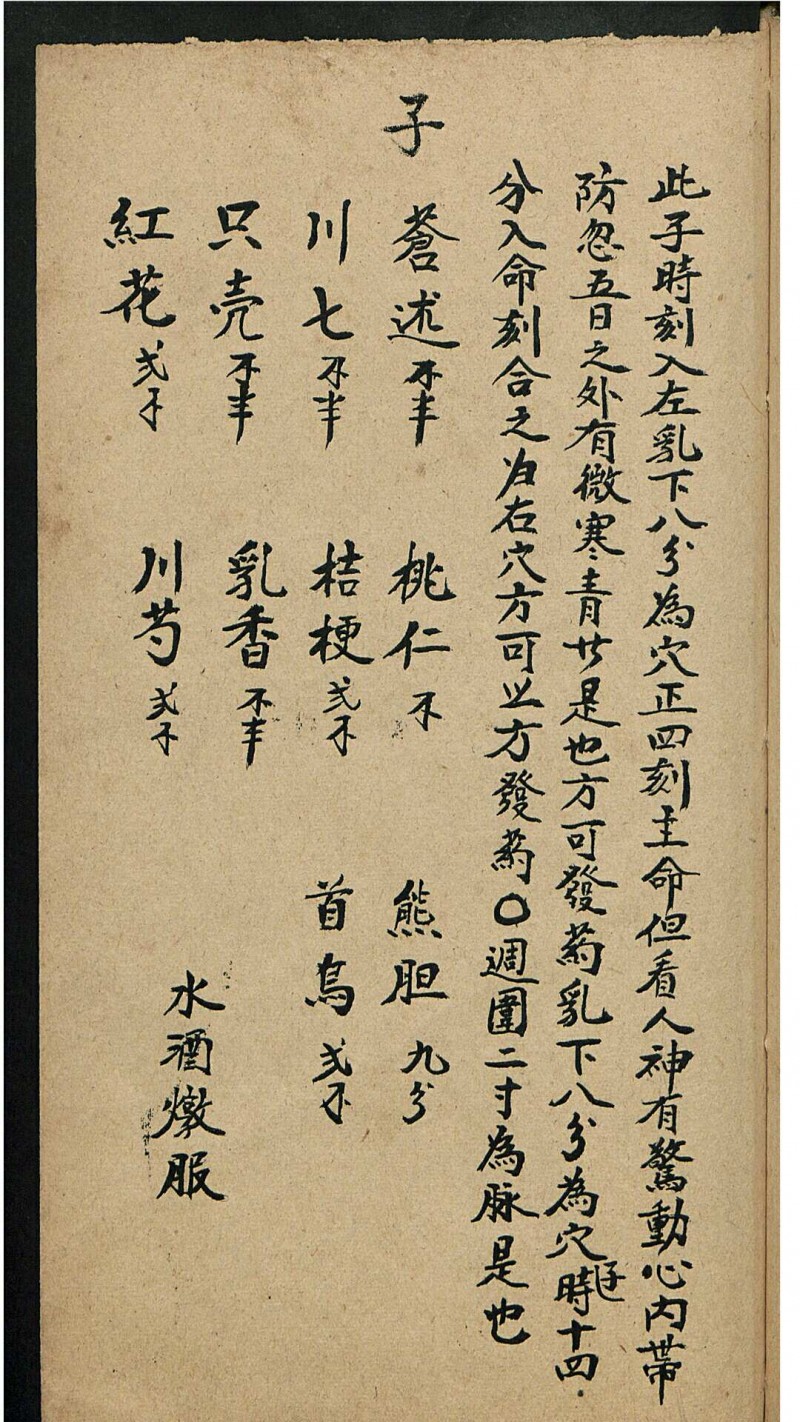 此子時刻入左乳下八分為穴正四刻主命但看人神有驚動心内帶
防忽五日之外有微寒青廿是也方可發葯乳下八分為穴子時十四
分入命刻合之为右穴方可以方發葯〇週圍二寸為脉是也
子
蒼述不半 桃仁不 熊胆九分
川七不半 桔梗弍不 首烏弍不
只壳不半 乳香不半
紅花弍不 川芍弍不
水酒燉服